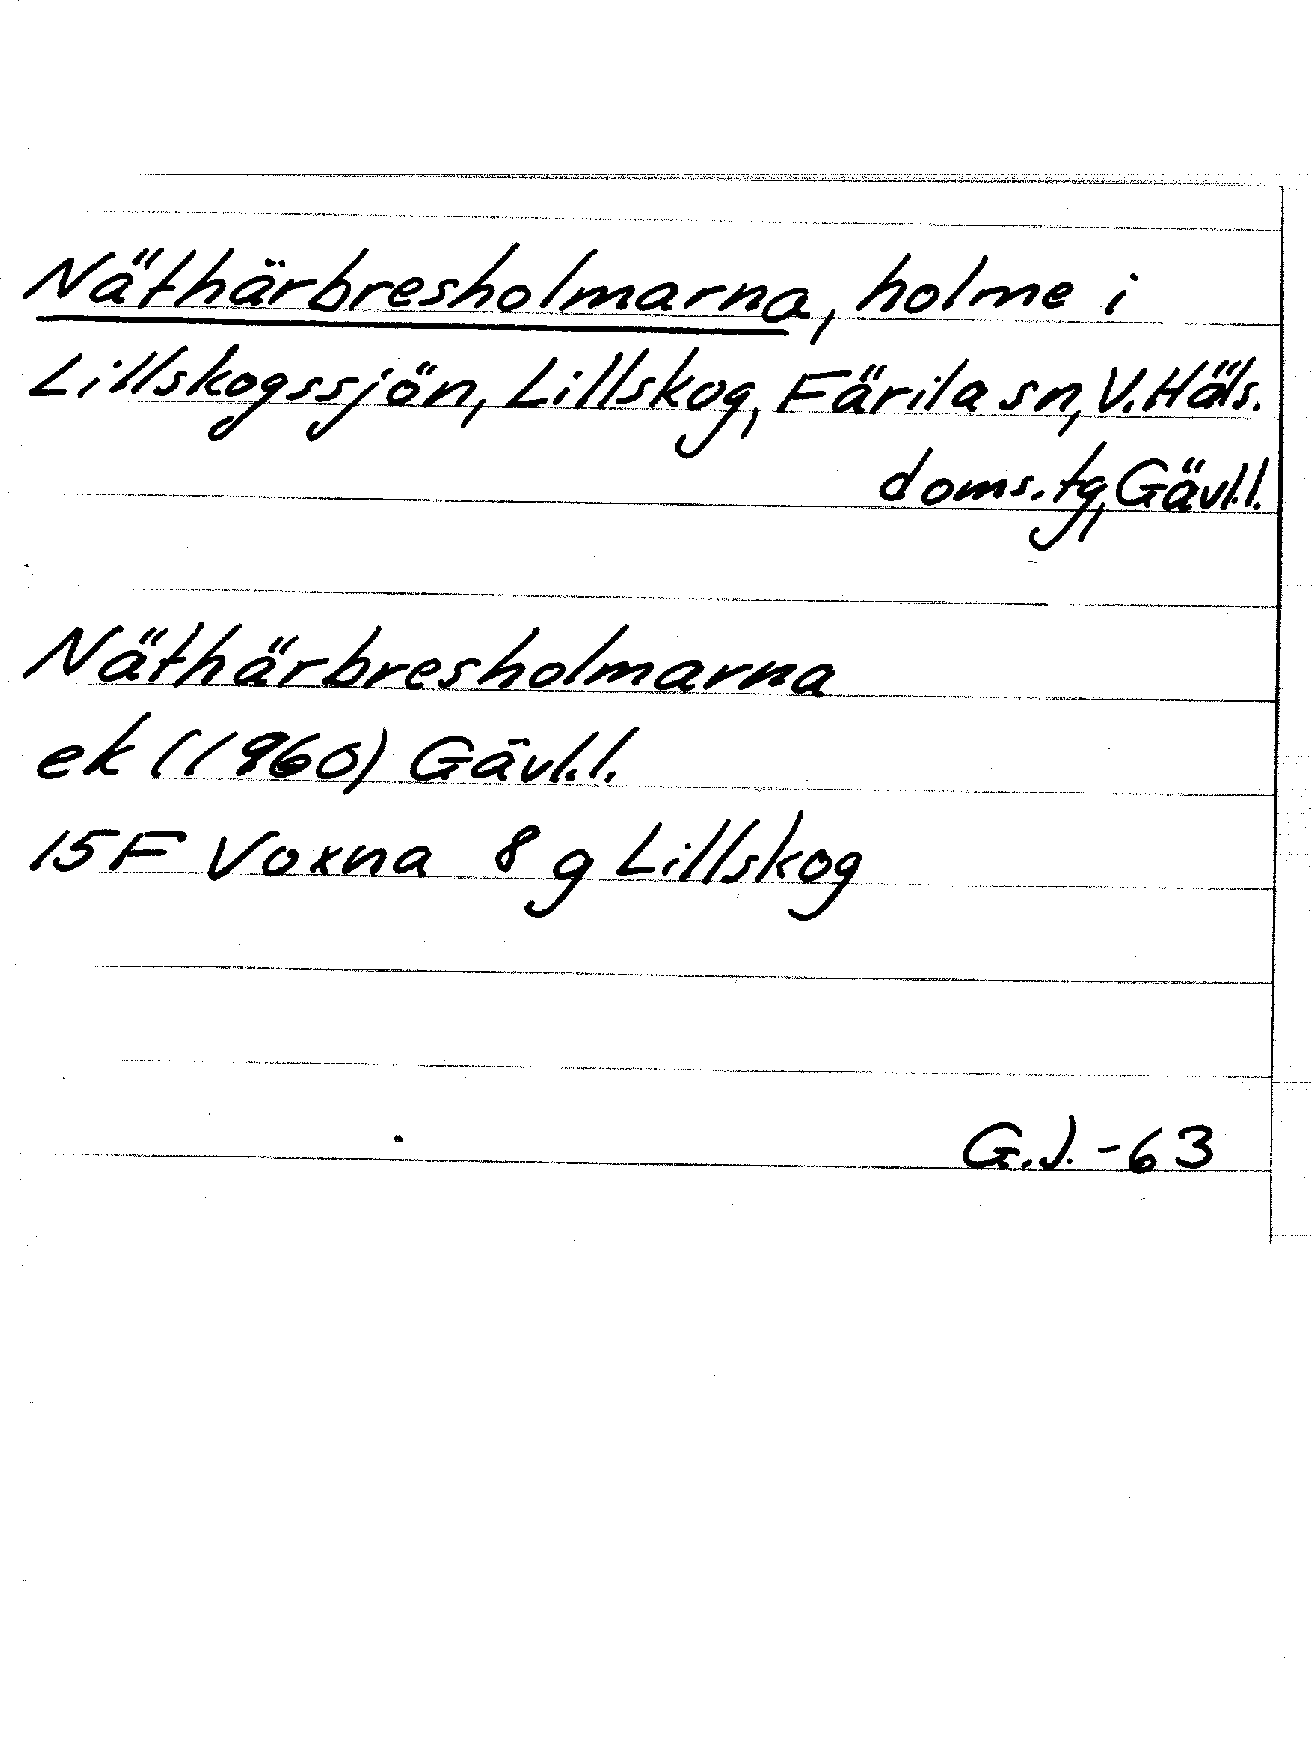 Näthärbresholmarna, holme i
Lillskogssjön, Lillskog, Färila sn, V. Häls.
doms. tg, Gävl.l.
Näthärbresholmarna
ek (1960) Gävl.l.
15F Voxna 8 g Lillskog
G.J. -63